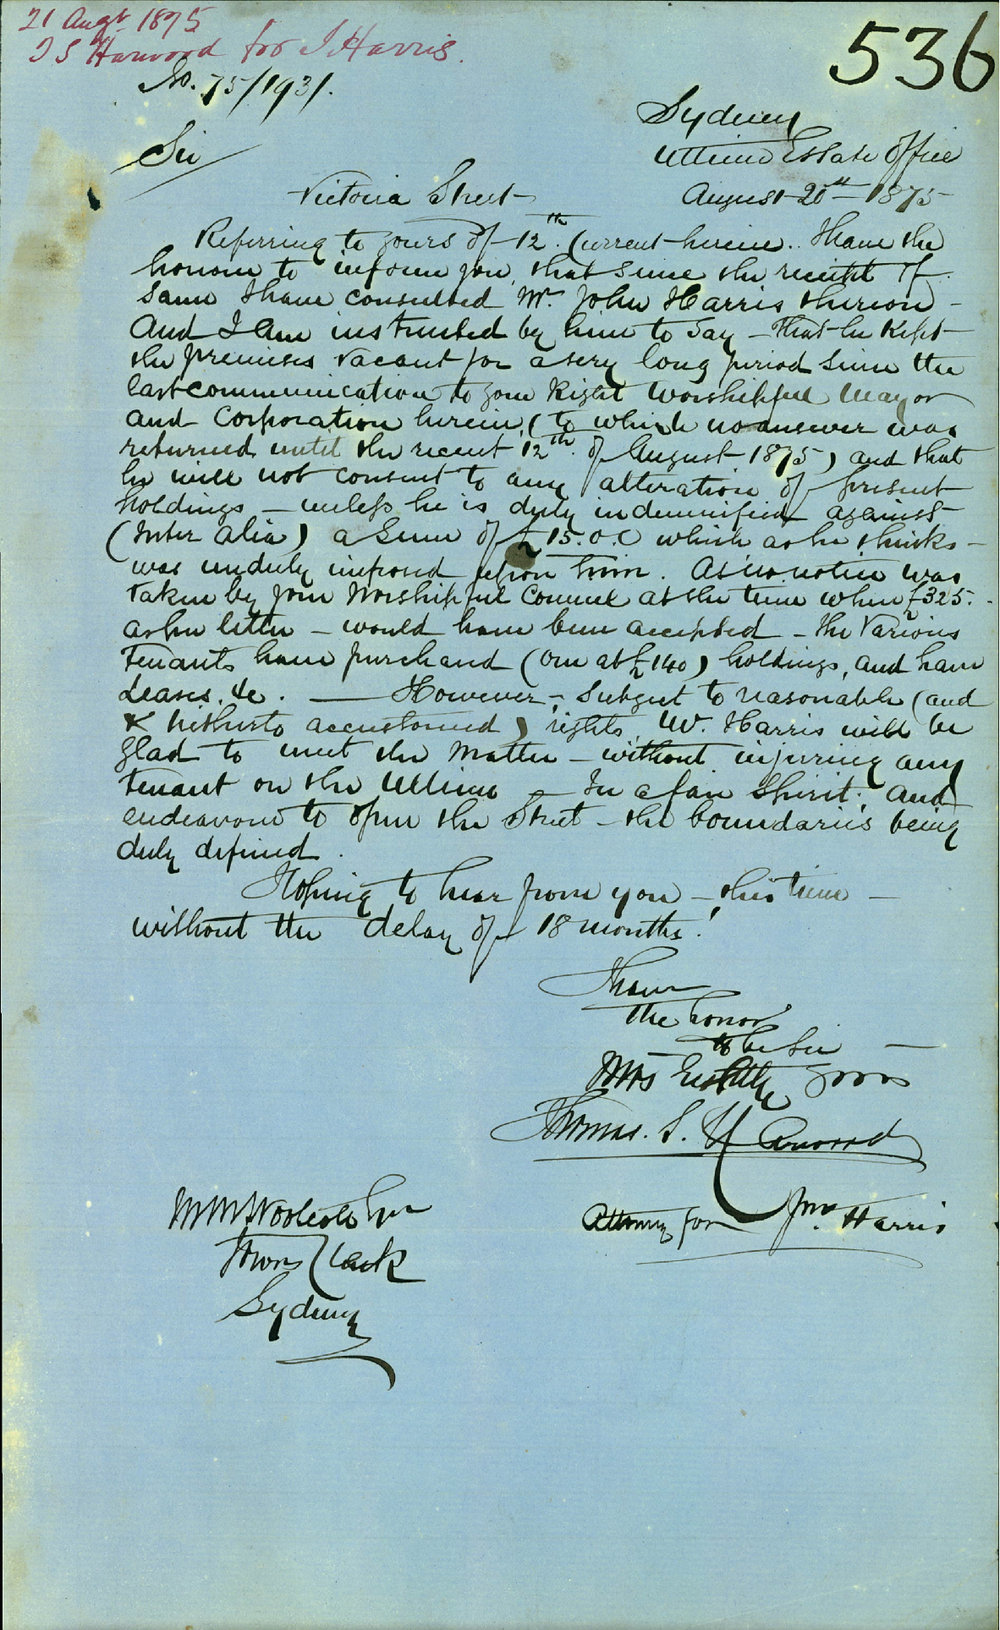 21 Augt 1875
T S Harwood for J Harris.
536
No. 75/1931.
Sydney
Ultimo Estate Office
August 20th 1875
Sir
Victoria Street
Referring to yours of 12th. Current herein.. I have the
honour to inform you, that since the receipt of
same I have consulted Mr. John Harris thereon -
and I am instructed by him to say - that he kept
the premises vacant for a very long period since the
last communication to your Right Worshipful Mayor
and Corporation herein, (to which no answer was
returned until the recent 12th. of August 1875) and that
he will not consent to any alteration of present
holdings - unless he is duly indemnified against
(Inter alia) a Sum of £15.0.0 which as he thinks -
was unduly imposed upon him. As no notice was
taken by your Worshipful Council at the time when £325. -
as per letter - would have been accepted - the various
tenants have purchased (one at £140) holdings, and have
Leases, &c. — However, - Subject to reasonable (and
hitherto accustomed) rights Mr. Harris will be
glad to meet the matter - without injuring any
tenant on the Ultimo - In a fair Spirit; and
endeavour to open the Street - the boundaries being
duly defined.
Hoping to hear from you - this time -
without the delay of 18 months!
I have
the honor
to be Sir —
yours
Thomas. S. Harwood
Attorney for Jno. Harris
Woolcott Esqre
Town Clerk
Sydney